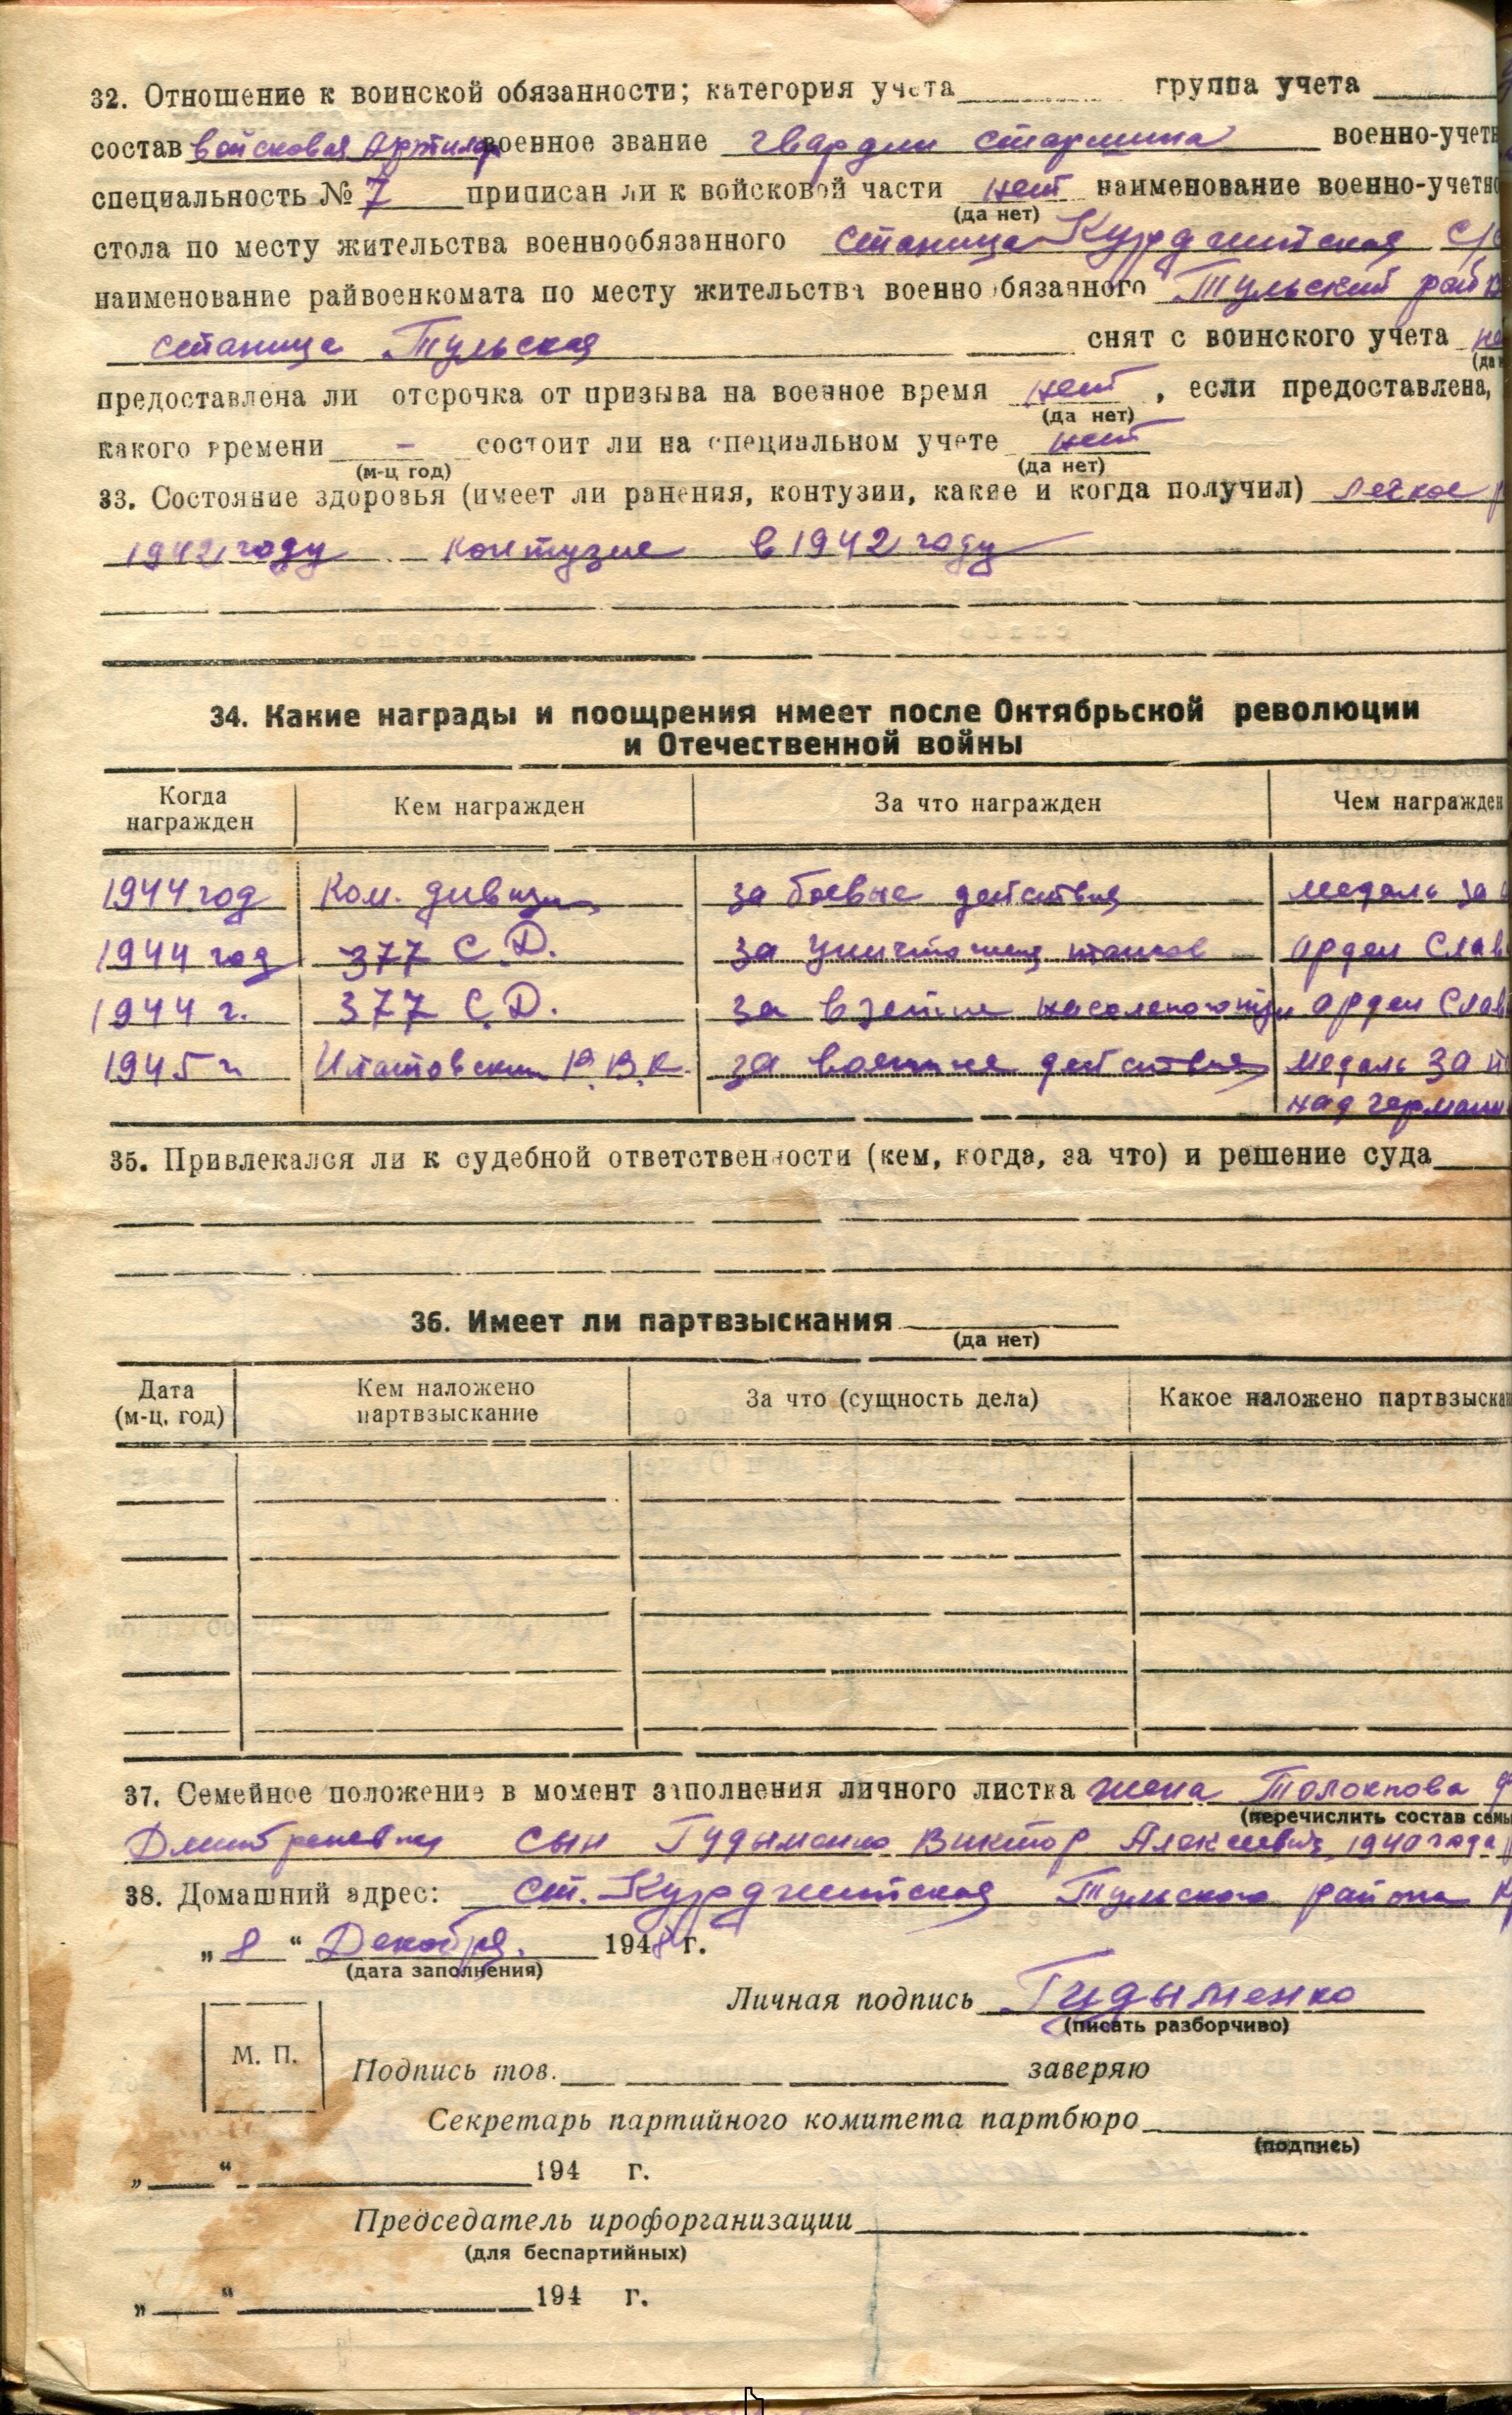 32. Отношение к воинской обязанности; категория учета группа учета
состав войсковая Артилер военное звание гвардии старшина военно-учетн
специальность № 7 приписан ли к войсковой части нет наименование военно-учетно
(да нет)
стола по месту жительства военнообязанного станица Курджипская с/с
наименование райвоенкомата по месту жительства военнообязанного Тульский рай
станица Тульская снят с воинского учета не
(да н
предоставлена ли отсрочка от призыва на военное время нет, если предоставлена,
(да нет)
какого времени – состоит ли на специальном учете нет
(м-ц год) (да нет)
33. Состояние здоровья (имеет ли ранения, контузии, какие и когда получил) легкое р
1942 году контузие в 1942 году
34. Какие награды и поощрения имеет после Октябрьской революции
и Отечественной войны
Когда награжден Кем награжден За что награжден Чем награжден
1944 год Ком. дивизии за боевые действия медаль за
1944 год 377 С.Д. за уничтожения танков орден Слав
1944 г. 377 С.Д. за взятие населеного пун орден Слав
1945 г. Р.В.К. за военные действия медаль за п
над герман
35. Привлекался ли к судебной ответственности (кем, когда, за что) и решение суда
36. Имеет ли партвзыскания
(да нет)
Дата (м-ц. год) Кем наложено партвзыскание За что (сущность дела) Какое наложено партвзыскан
37. Семейное положение в момент заполнения личного листка жена Толокнова
(перечислить состав семьи
Дмитреневна сын Гудыменко Виктор Алексеевич 1940 года р
38. Домашний адрес: ст. Курджипская Тульского района Кр
„ 8 “ Декабря. 1948 г.
(дата заполнения)
Личная подпись Гудыменко
(писать разборчиво)
М. П.
Подпись тов. заверяю
Секретарь партийного комитета партбюро
(подпись)
„ “ 194 г.
Председатель профорганизации
(для беспартийных)
„ “ 194 г.